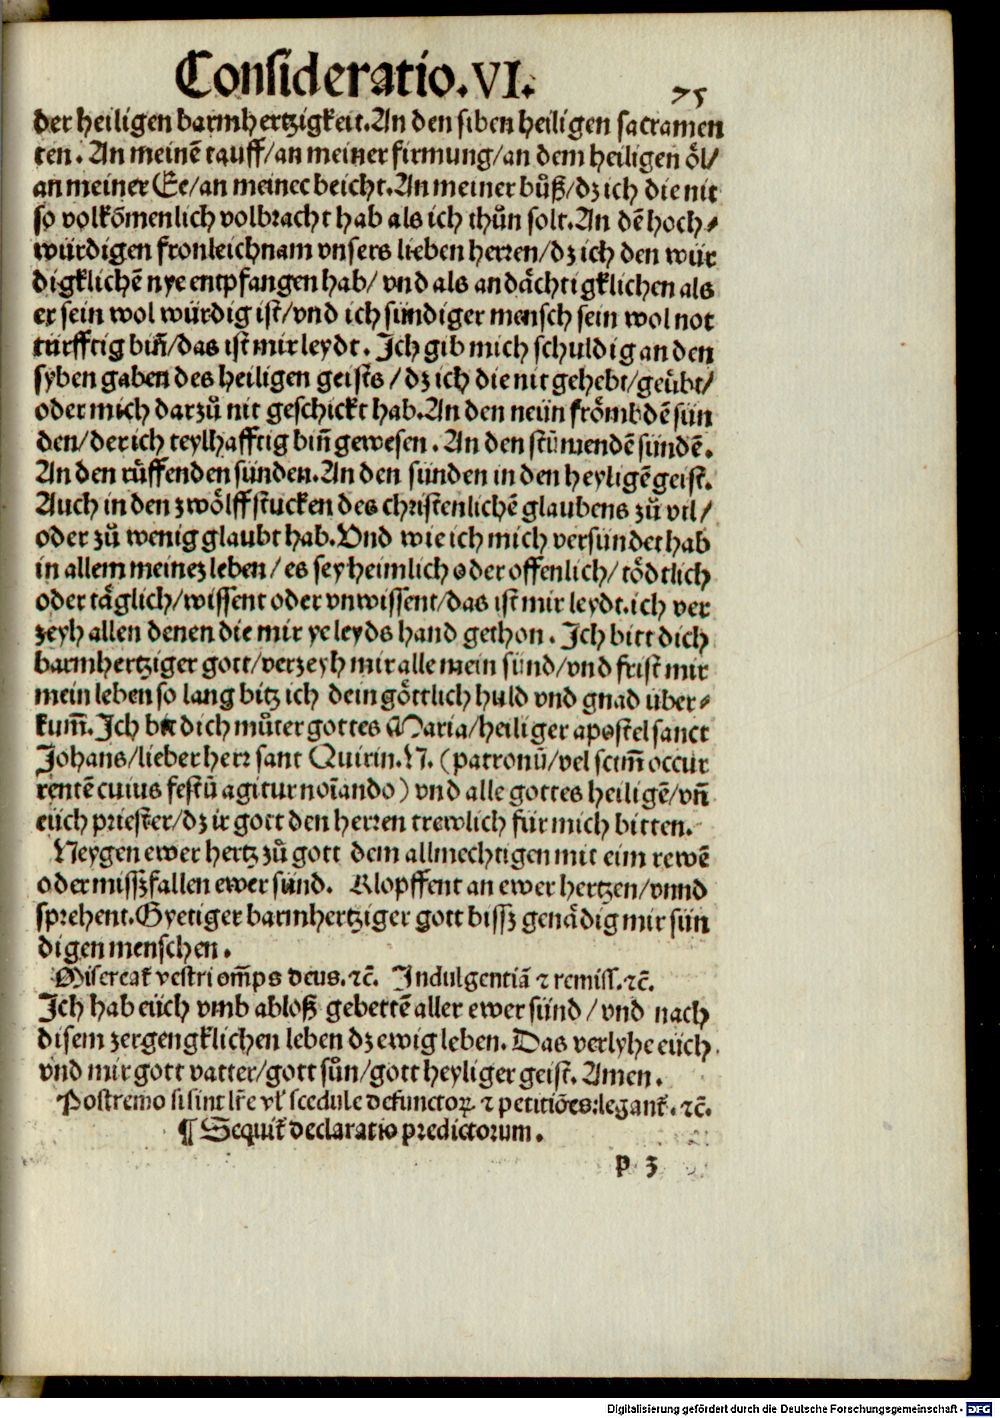 Consideratio.VI.
75
der heiligen barmhertzigkeit.An den siben heiligen sacramen
ten. An meinē tauff/an meiner firmung/an dem heiligen öl/
an meiner Ee/an meiner beicht.An meiner bůß/dz ich die nit
so volkōmenlich volbracht hab als ich thůn solt.An dē hoch⸗
würdigen fronleichnam vnsers lieben herren/dz ich den wür
digklichē nye entpfangen hab/ vnd als andächtigklichen als
er sein wol würdig ist/vnd ich sündiger mensch sein wol not
türfftig biñ/das ist mir leydt. Ich gib mich schuldig an den
syben gaben des heiligen geists /dz ich die nit gehebt/geübt/
oder mich darzů nit geschickt hab.An den neün frömbdē sün
den/der ich teylhafftig biñ gewesen. An den stūmendē sündē.
An den růffenden sünden.An den sünden in den heyligē geist.
Auch in den zwölff stucken des christenlichē glaubens zů vil/
oder zů wenig glaubt hab.Vnd wie ich mich versündet hab
in allem meinez leben/ es sey heimlich oder offenlich/ tödtlich
oder täglich/wissent oder vnwissent/das ist mir leydt.ich ver
zeyh allen denen die mir ye leyds hand gethon. Ich bitt dich
barmhertziger gott/verzeyh mir alle mein sünd/vnd frist mir
mein leben so lang bitz ich dein göttlich huld vnd gnad über⸗
kum̄.Ich bit dich můter gottes Maria/heiliger apostel sanct
Johans/lieber herr sant Quirin.N. (patronū/vel sctm̄ occur
rentē cuius festū agitur noīando) vnd alle gottes heiligē/vñ
eüch priester/dz ir gott den herren trewlich für mich bitten.
Neygen ewer hertz zů gott dem allmechtigen mit eim rewē
oder missżfallen ewer sünd. Klopffent an ewer hertzen/vnnd
sprehent.Gyetiger barmhertziger gott bissż genädig mir sün
digen menschen.
Misereaꝉ vestri om̄ps deus.⁊c̄. Indulgentiā ⁊ remiss.⁊c̄.
Ich hab eüch vmb abloß gebettē aller ewer sünd /vnd nach
disem zergengklichen leben dz ewig leben. Das verlyhe eüch
vnd mir gott vatter/gott sůn/gott heyliger geist. Amen.
Postremo si sint lr̄e vl̓ scedule defunctoꝝ ⁊ petitiōes:leganꝉ.⁊c̄.
¶ Sequiꝉ declaratio predictorum.
p 3
Digitalisierung gefördert durch die Deutsche Forschungsgemeinschaft - DFG